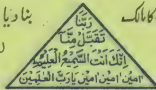 کا مالک
بنا دیا
رَبَّنَا
تَقَبَّلْ مِنَّا
اِنَّكَ اَنْتَ السَّمِيْعُ الْعَلِيْمُ
اٰمين اٰمين اٰمين يَا رَبَّ الْعٰلَمِيْنَ